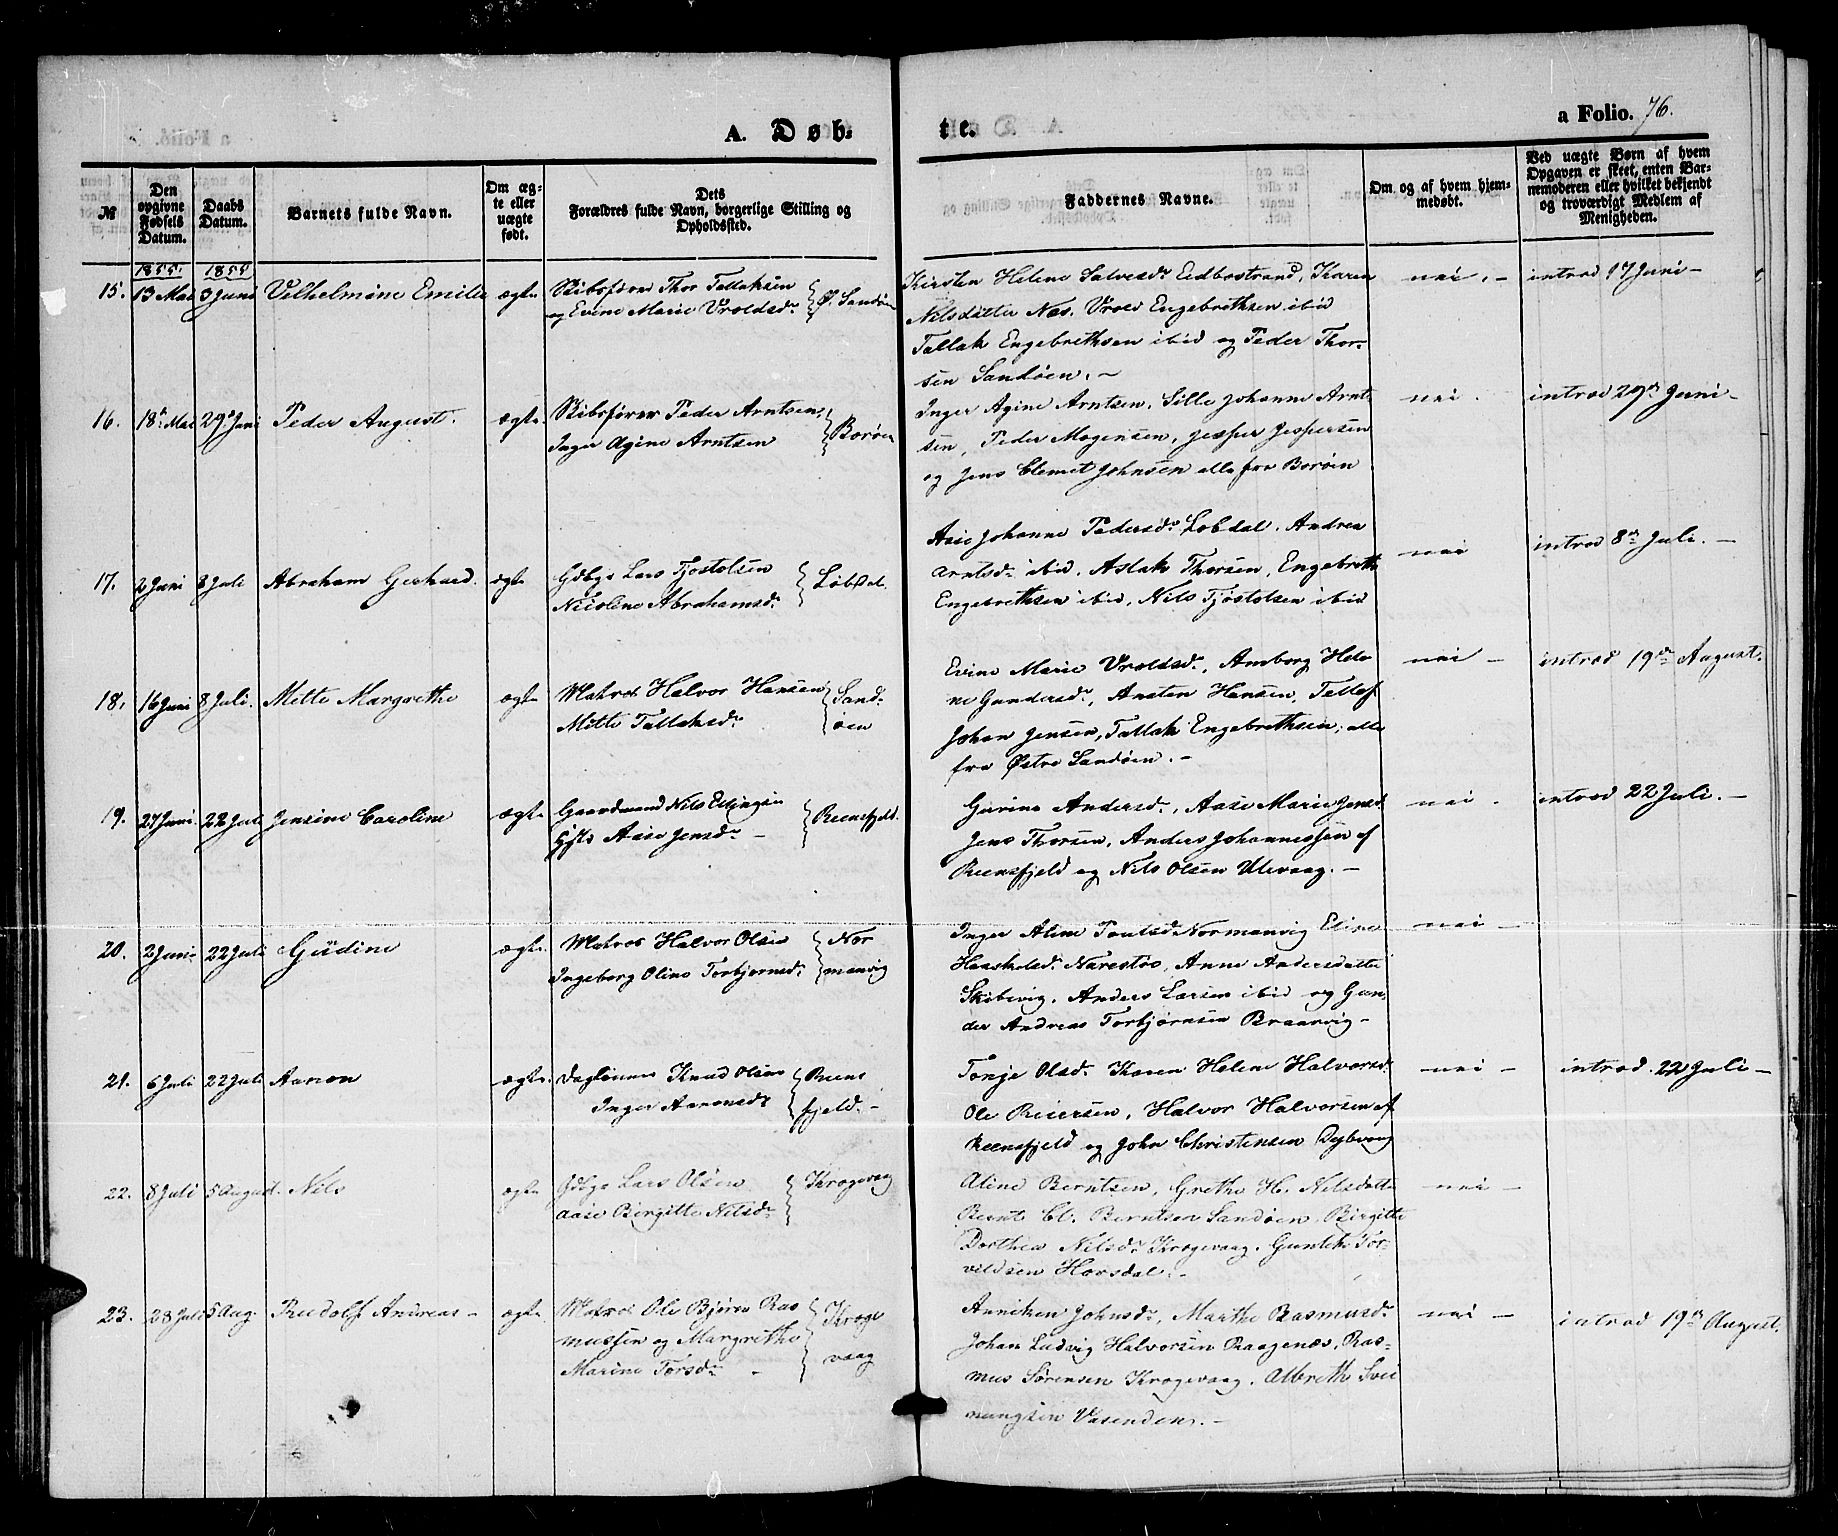 A. Døb-
te.
a Folio. 76.
№
Den opgivne Fødsels Datum.
Daabs Datum.
Barnets fulde Navn.
Om ægte eller uægte født.
Dets Forældres fulde Navn, borgerlige Stilling og Opholdssted.
Faddernes Navne.
Om og af hvem hjemmedøbt.
Ved uægte Børn af hvem Opgaven er skeet, enten Barnemoderen eller hvilket bekjendt og troværdigt Medlem af Menigheden.
1855. 1855
15. 13 Mai 3 Juni Velhelmine Emilie ægte Skibsfører Thor Tallaksen
og Evine Marie Vroldsdr. Ø. Sandøen
Kirsten Helene Salvesdr. Eidbostrand, Karen
Nilsdatter Næs. Vrold Engebrethsen ibid
Tallak Engebrethsen ibid og Peder Thor-
sen Sandøen. -
nei. - introd 17 Juni -
16. 18 Mai 29 Juni Peder August. ægte. Skibsfører Peder Arntsen,
Inger Agine Arntsen Borøen
Inger Agine Arntsen. Sille Johanne Arnt-
sen, Peder Mogensen, Jesper Jespersen
og Jens Clemet Johnsen alle fra Borøen
nei. introd 29de Juni -
17. 2 Juni 8 Juli Abraham Gerhard. ægte Gdbgr Lars Tjostolsen
Nicoline Abrahamsdr. Løbdal.
Aase Johanne Pedersdr. Løbdal. Andrea
Arntsdr. ibid, Aslak Thorsen, Engebreth
Engebrethsen ibid, Nils Tjøstolsen ibid
nei introd 8de Juli. -
18. 16 Juni 8 Juli. Mette Margrethe ægte Matros Halvor Hansen
Mette Tallaksdr. Sand-
øen
Evine Marie Vroldsdr., Amborg Hele-
ne Gundersdr., Ansten Hansen, Tellef
Johan Jensen, Tallak Engebrethsen, alle
fra Østre Sandøen. -
nei - introd 19de August.
19. 27 Juni 22 Juli Jensine Caroline ægte Gaardmand Nils Ellingsen
Aase Jensdr. - Reensfjeld.
Gurine Andersdr., Aase Marie Jensd.
Jens Thorsen, Anders Johannessen af
Reensfjeld og Nils Olsen Ulevaag. -
nei - introd 22 Juli. -
20. 2 Juni 22 Juli Gudine ægte. Matros Halvor Olsen
Ingeborg Oline Torbjørnsdr. Nor
manvig
Inger Aline Normanvig Eline
Narestøe, Anne Andersdatter
Skibevig. Anders Larsen ibid og Gun-
der Andreas Torbjørnsen Braarvig -
nei -
21. 6 Juli 22 Juli Aanon ægte. Dagleiner Knud Olsen
Inger Aanonsdr Reens
fjeld. -
Tonje Olsdr. Karen Helene Halvorsd.
Ole Reiersen, Halvor Halvorsen af
Reensfjeld og John Christensen Dybvaag
nei - introd. 22 Juli -
22. 8 Juli 5 August. Nils ægte Gdbgr Lars Olsen
Aase Birgitte Nilsdr Krogevaag
Aline Berntsen, Grethe H. Nilsdatter
Bernt Cl. Berntsen Sandøen, Birgitte
Dorthea Nilsdr. Krogevaag. Gunleik Tor-
vildsen Horsdal. -
nei -
23. 28 Juli 5 Aug. Rudolf Andreas - ægte. Matros Ole Bjørn Ras
mussen og Margrethe
Marine Torsdr. - Kroge
vaag
Anniken Johnsdr., Marthe Rasmusdr.
Johan Ludvig Halvorsen Kraagenæs, Ras-
mus Sørensen Krogevaag. Albreth Svei
nungsen Vasenden. -
nei - introd 19de August.